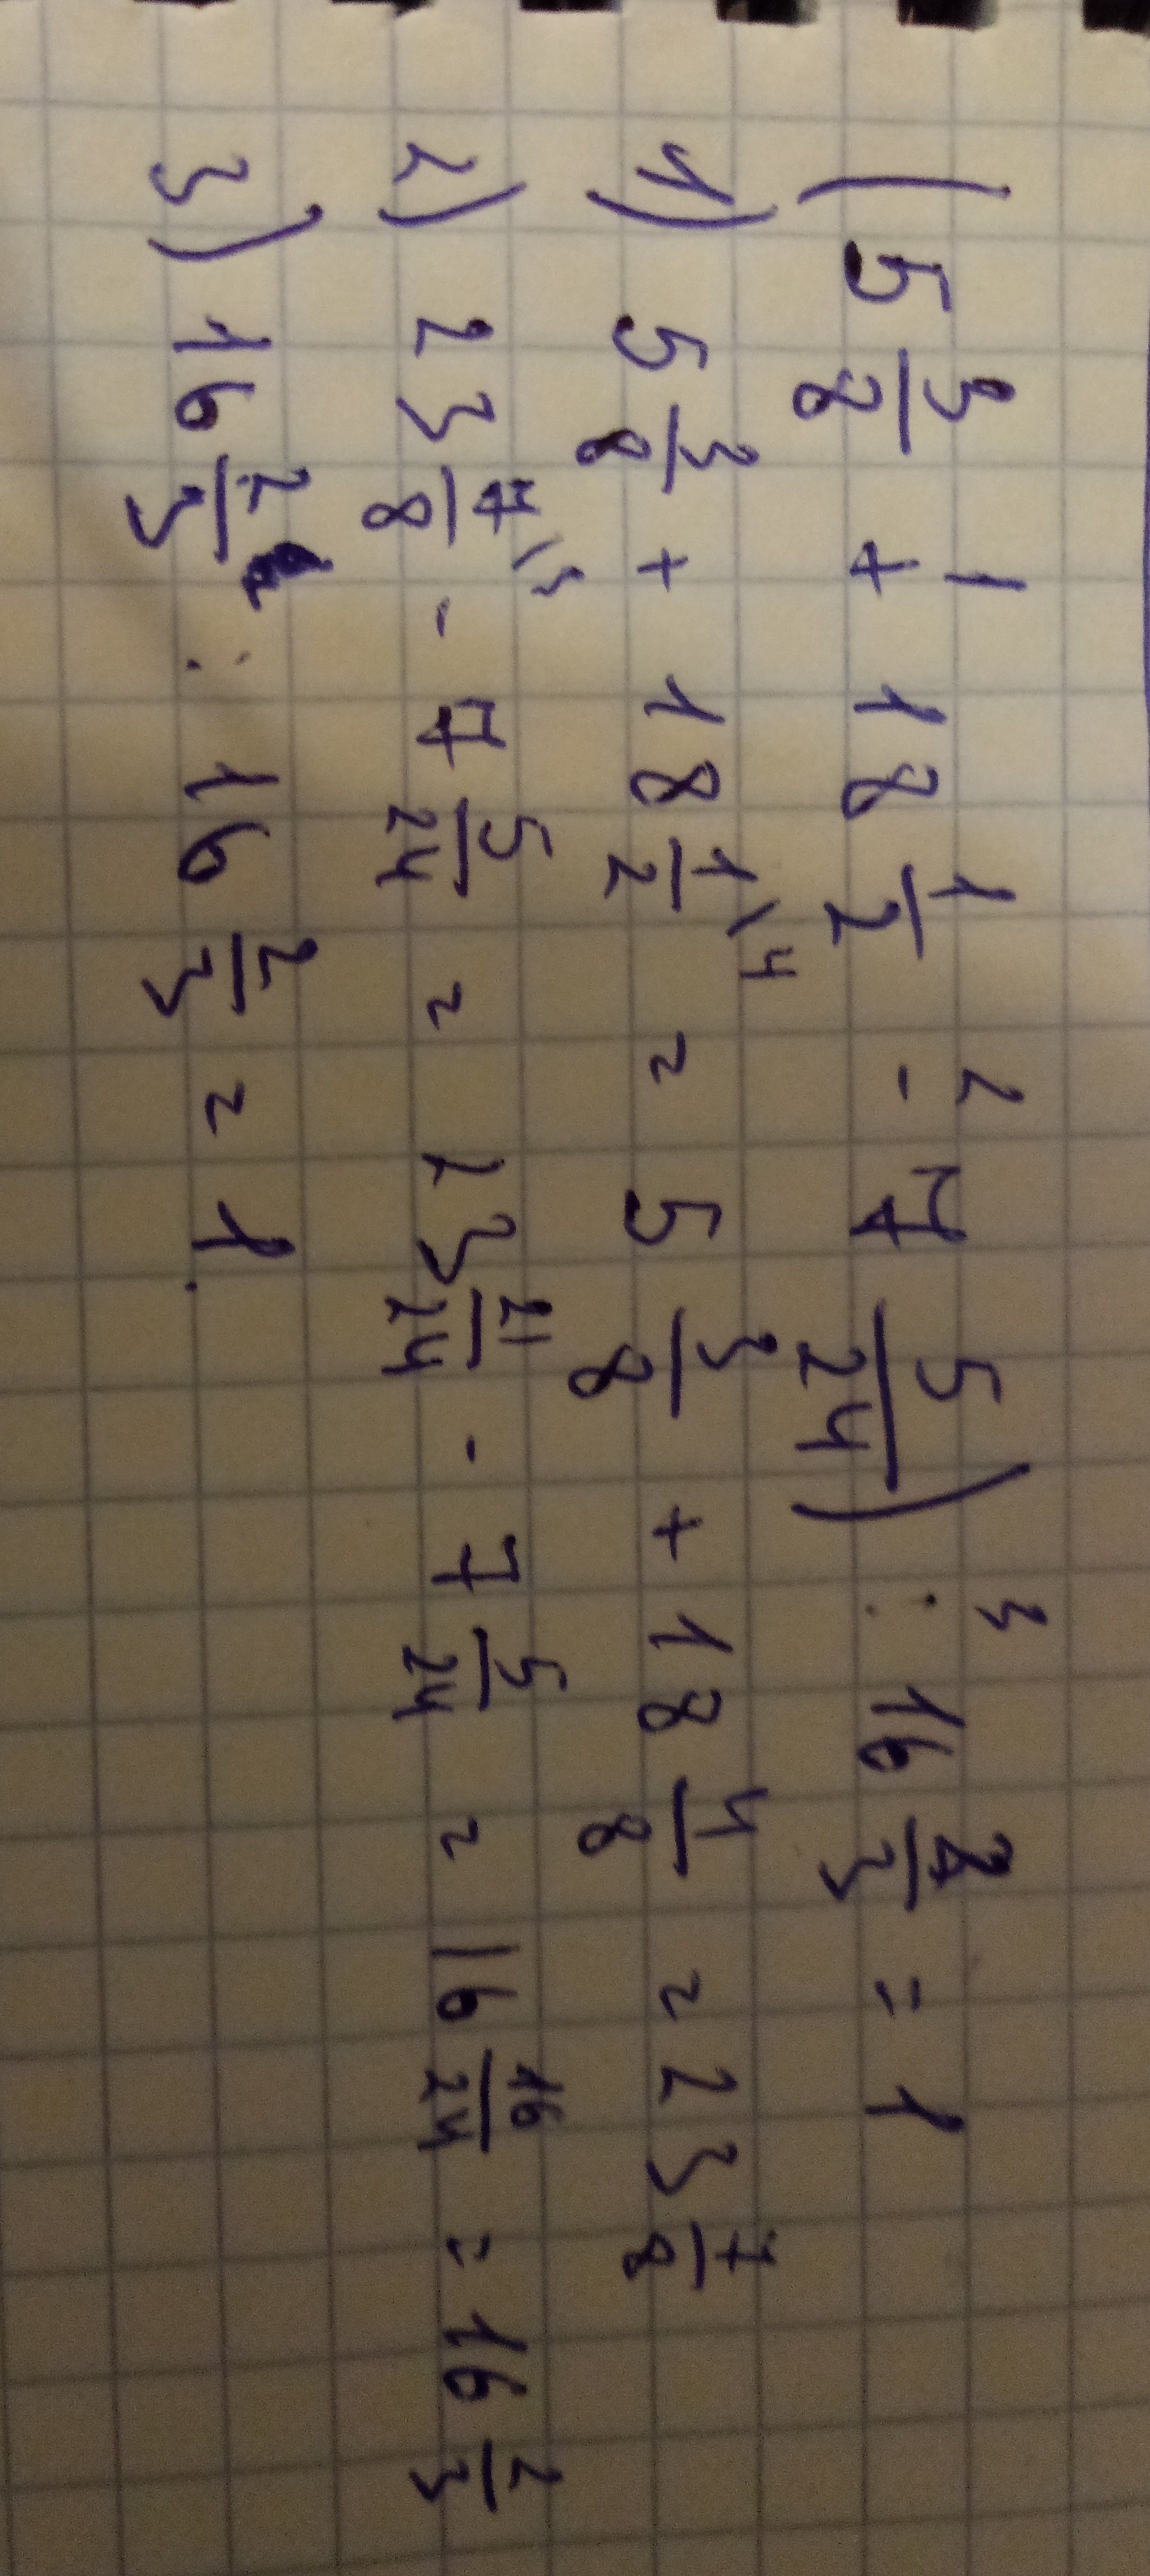 1 2 3
(5 3/8 + 18 1/2 - 7 5/24) : 16 2/3 = 1
1) 5 3/8 + 18 1\4/2 = 5 3/8 + 18 4/8 = 23 7/8
2) 23 7\3/8 - 7 5/24 = 23 21/24 - 7 5/24 = 16 16/24 = 16 2/3
3) 16 2/3 : 16 2/3 = 1.